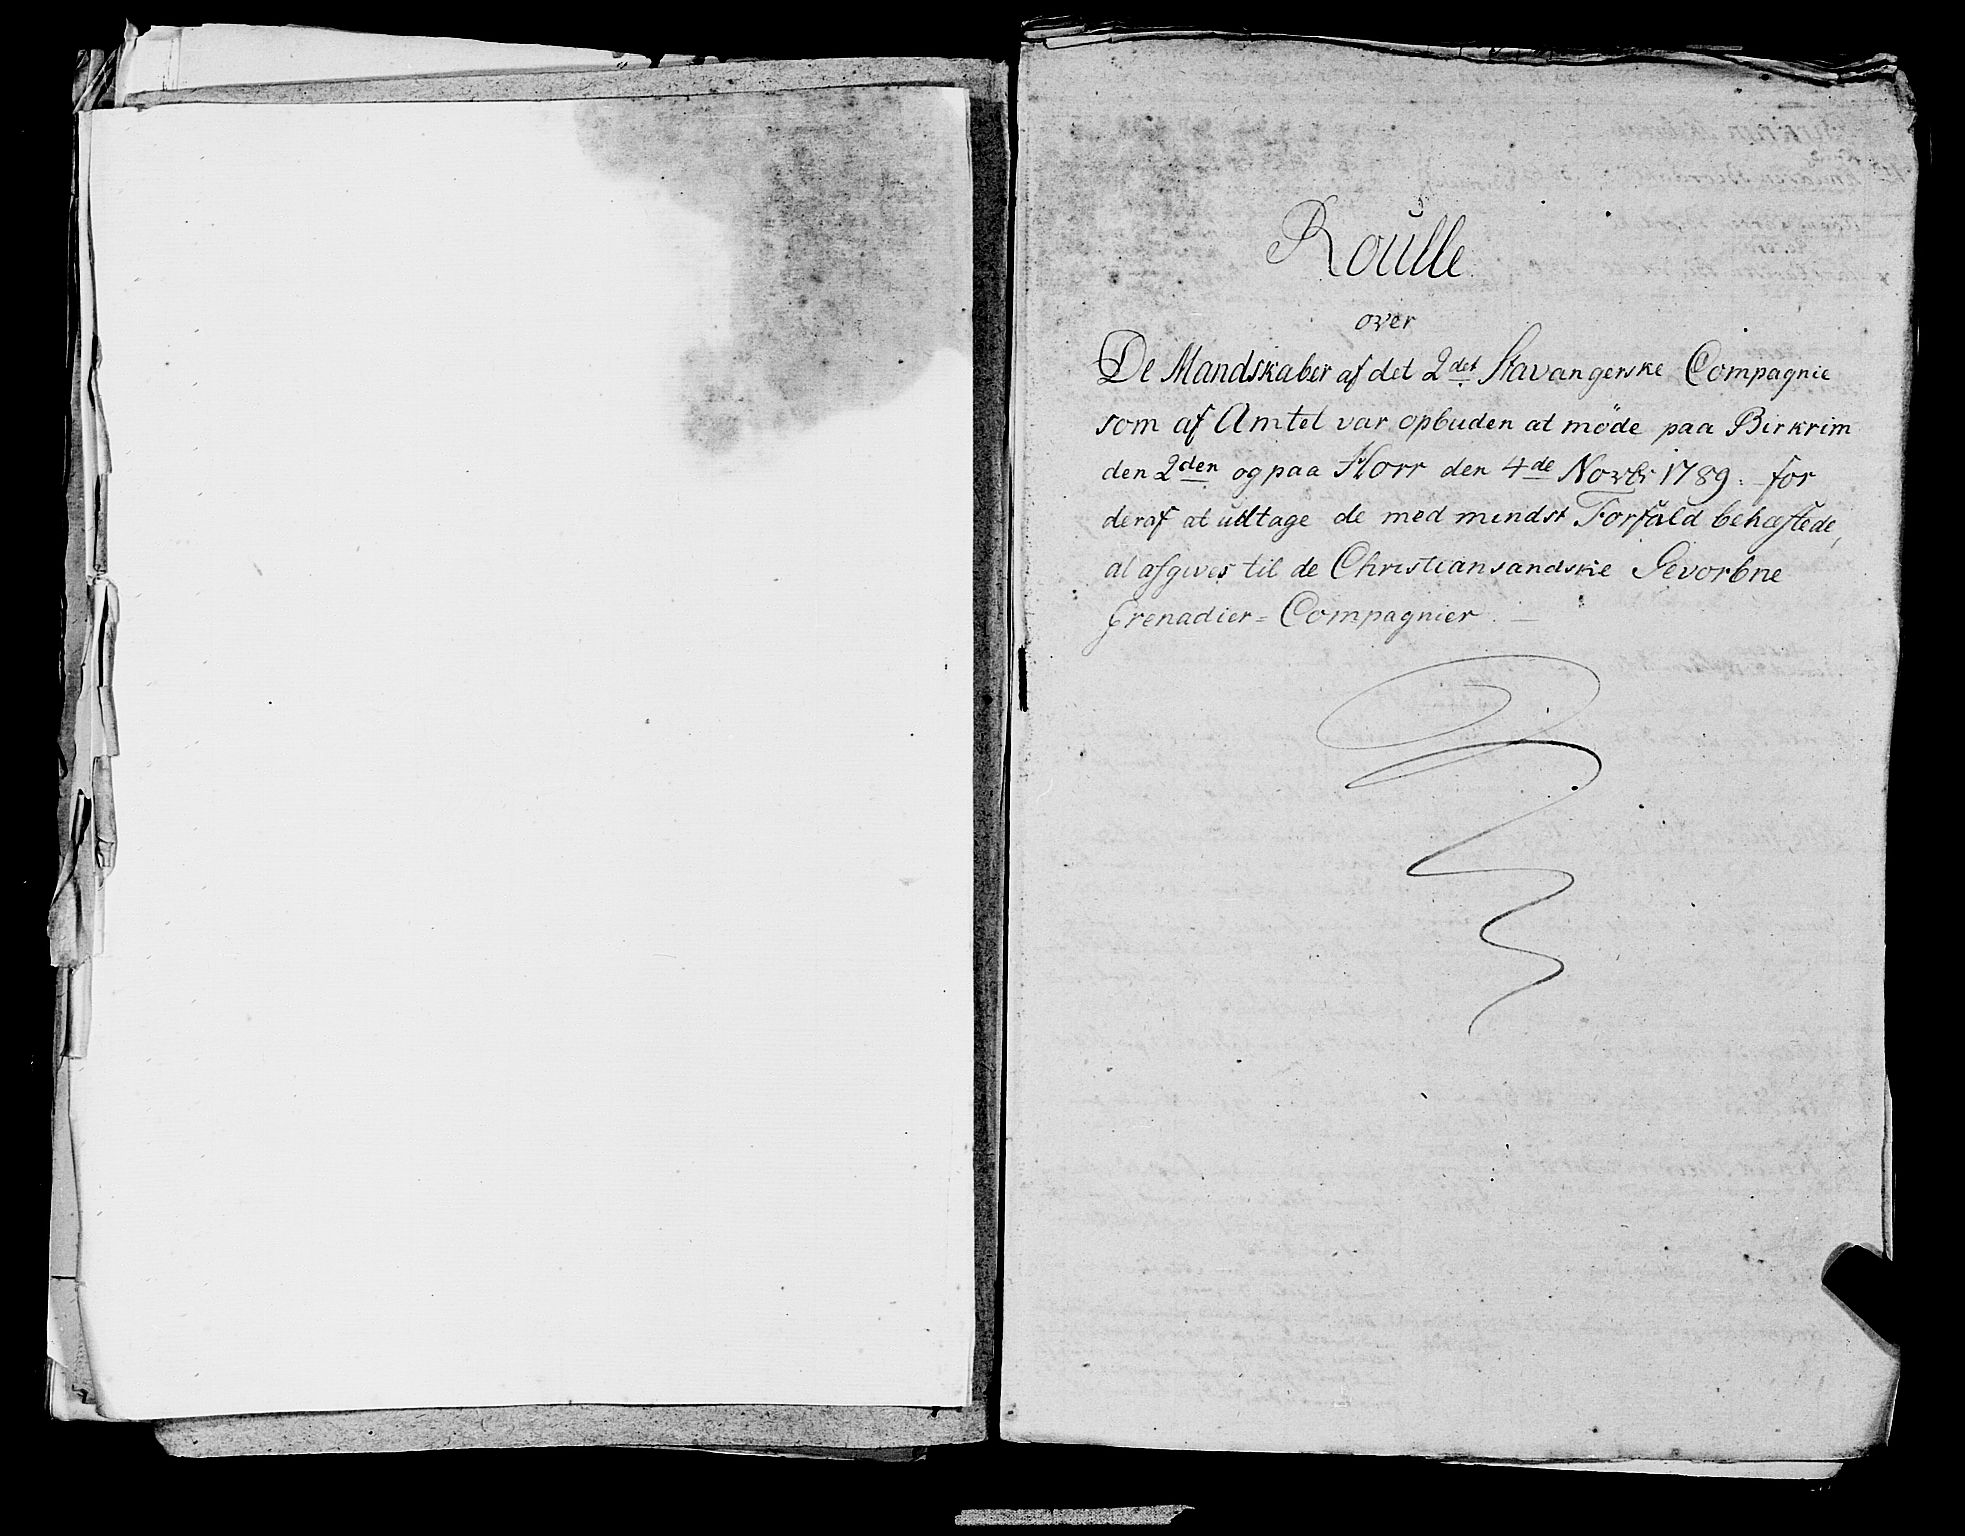 Roulle
over
De Mandskaber af det 2det Stavangerske Compagnie
som af Amtet var opbuden at möde paa Birkrim
den 2den og paa Horr den 4de Novbr 1789. for
deraf at udtage de med mindst Forfald behæftede,
at afgives til de Christiansandske Gevorbne
Grenadier= Compagnier. —